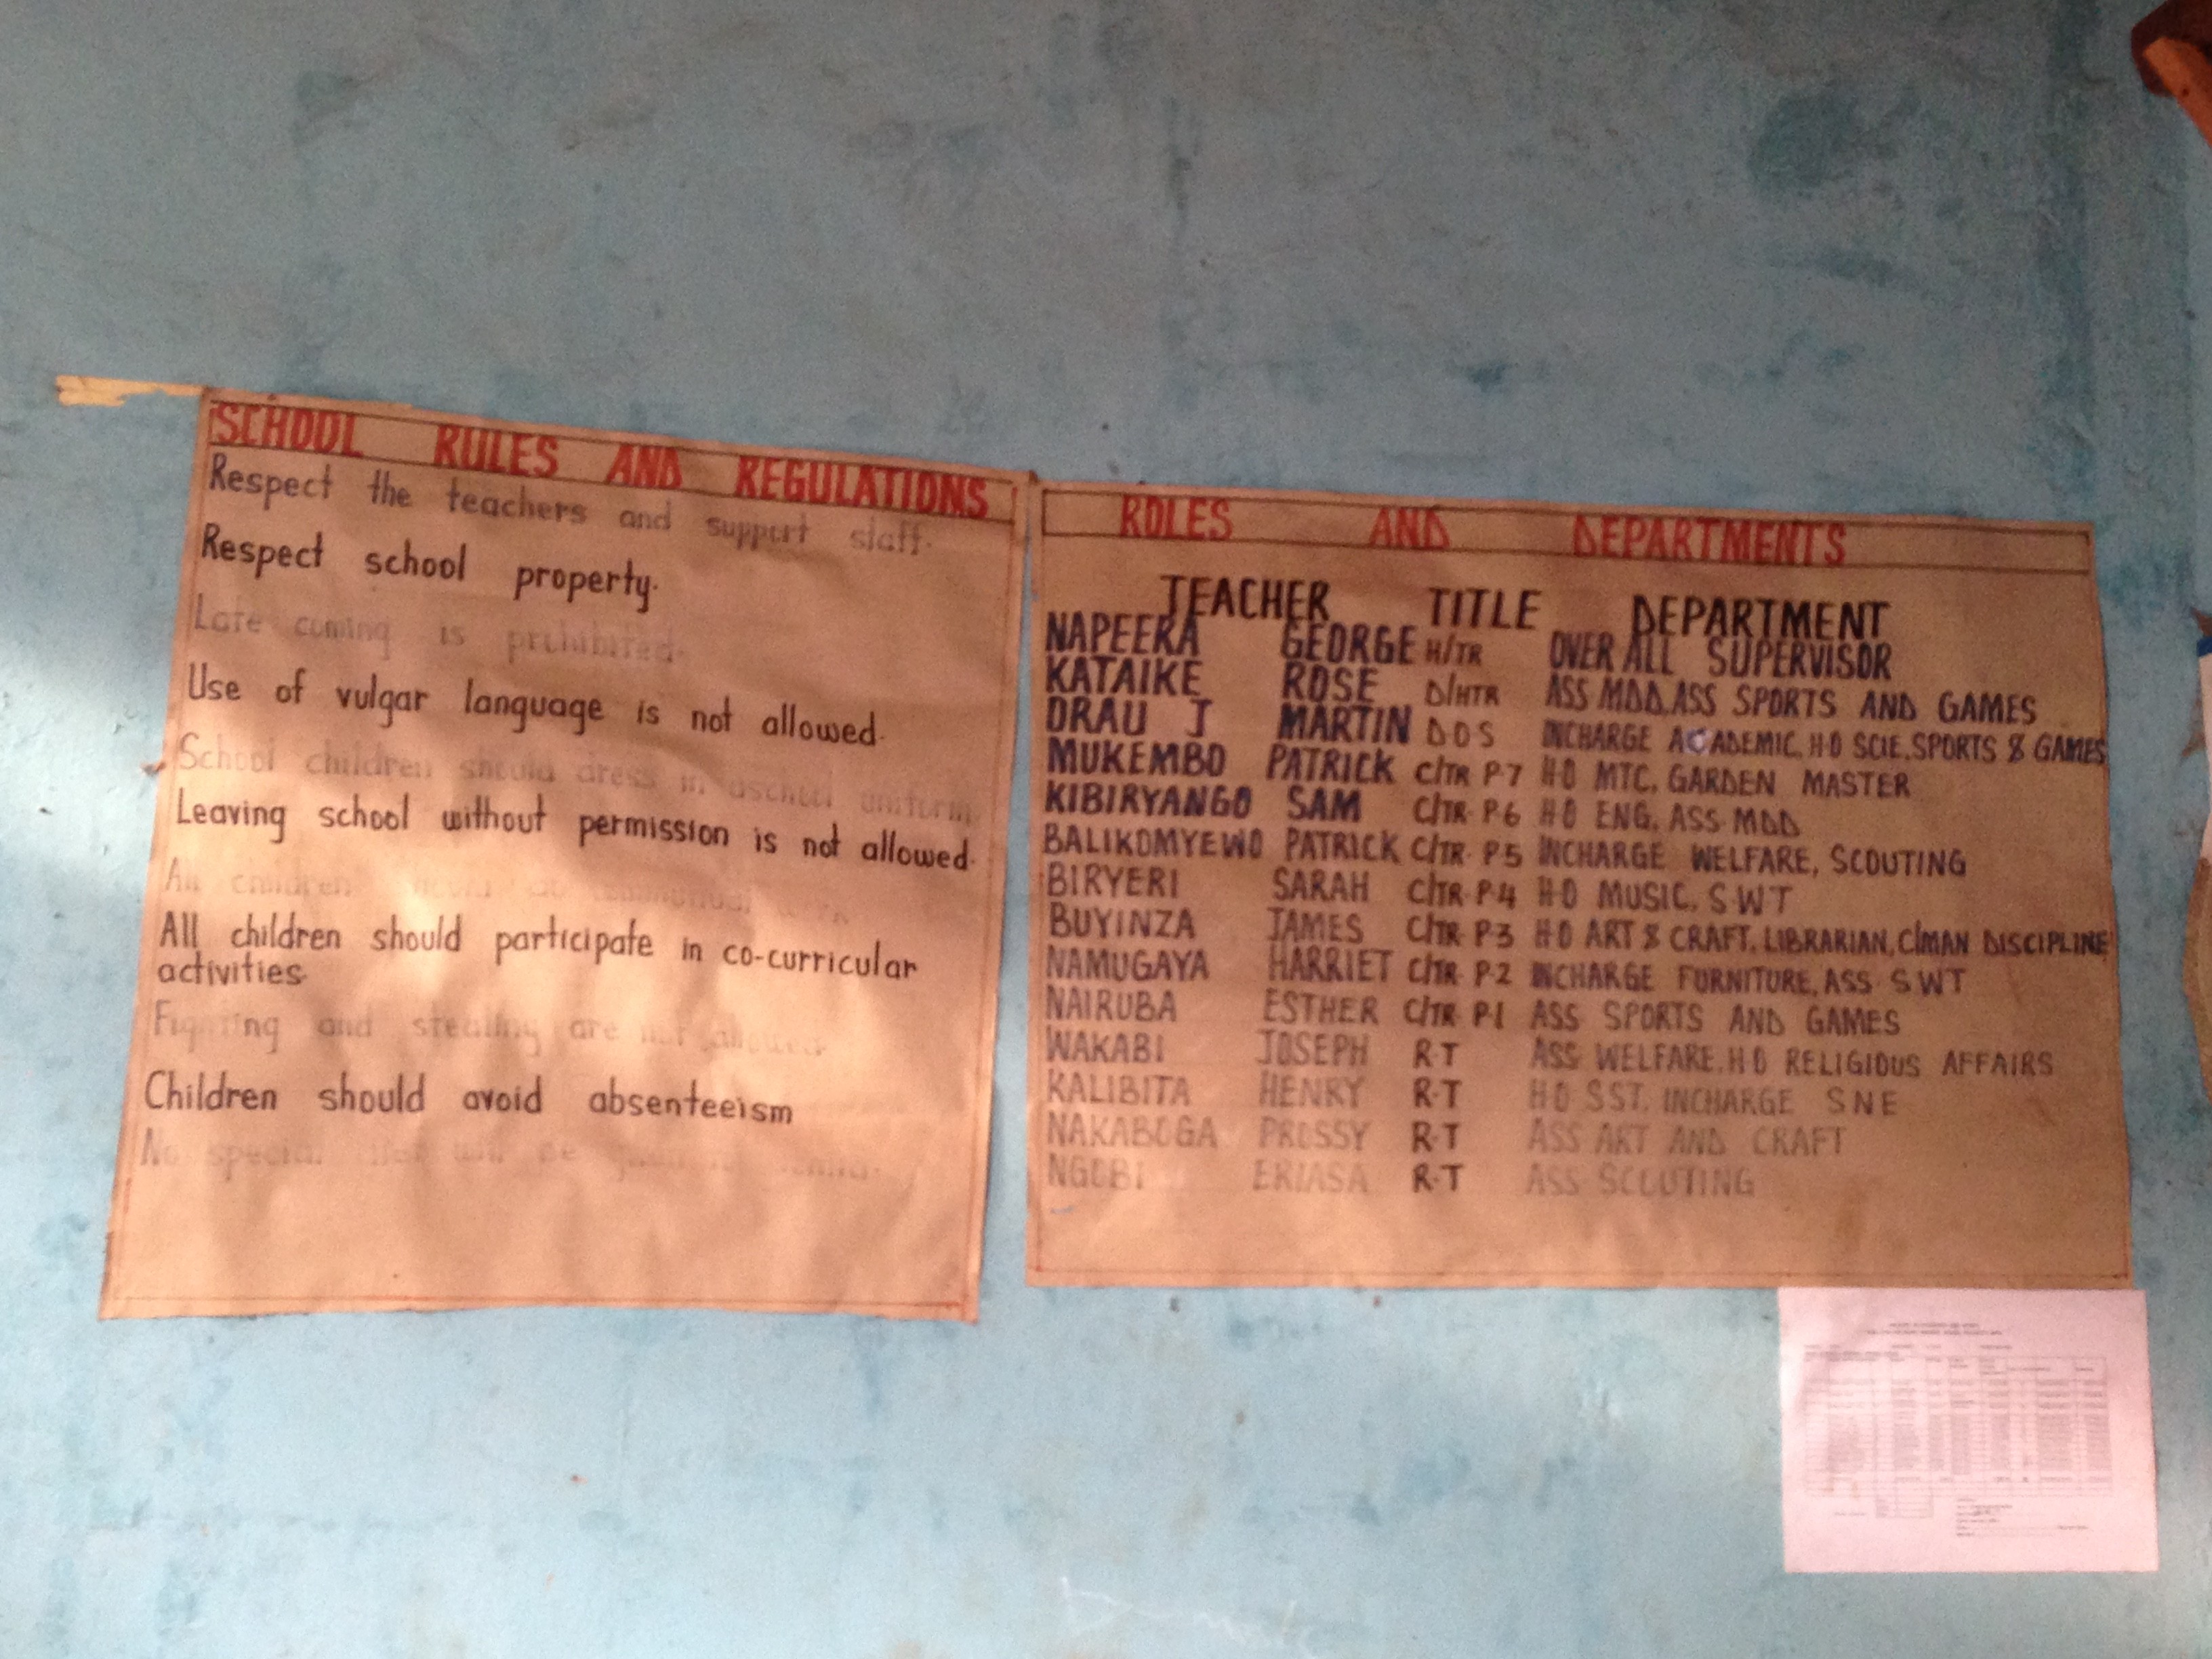 SCHOOL RULES AND REGULATIONS
Respect the teachers and support staff.
Respect school property.
Late coming is prohibited.
Use of vulgar language is not allowed.
School children should dress in aschool uniform
Leaving school without permission is not allowed.
All children should do communual work
All children should participate in co-curricular
activities.
Fighting and stealing are not allowed.
Children should avoid absenteeism
No special will be
ROLES AND DEPARTMENTS
TEACHER TITLE DEPARTMENT
NAPEERA GEORGE H/TR OVER ALL SUPERVISOR
KATAIKE ROSE D/HTR ASS MDD, ASS SPORTS AND GAMES
DRAU J MARTIN D O S INCHARGE ACADEMIC, H·O SCIE. SPORTS & GAMES
MUKEMBO PATRICK C/TR P·7 H·O MTC, GARDEN MASTER
KIBIRYANGO SAM C/TR P·6 H·O ENG, ASS MDD
BALIKOMYEWO PATRICK C/TR P·5 INCHARGE WELFARE, SCOUTING
BIRYERI SARAH C/TR P·4 H·O MUSIC, S·W·T
BUYINZA JAMES C/TR P·3 H·O ART & CRAFT, LIBRARIAN, C/MAN DISCIPLINE
NAMUGAYA HARRIET C/TR P·2 INCHARGE FURNITURE, ASS S W T
NAIRUBA ESTHER C/TR P·1 ASS SPORTS AND GAMES
WAKABI JOSEPH R·T ASS WELFARE, H·O RELIGIOUS AFFAIRS
KALIBITA HENRY R·T H·O SST, INCHARGE S N E
NAKABOGA PROSSY R·T ASS ART AND CRAFT
NGOBI ERIASA R·T ASS SCOUTING